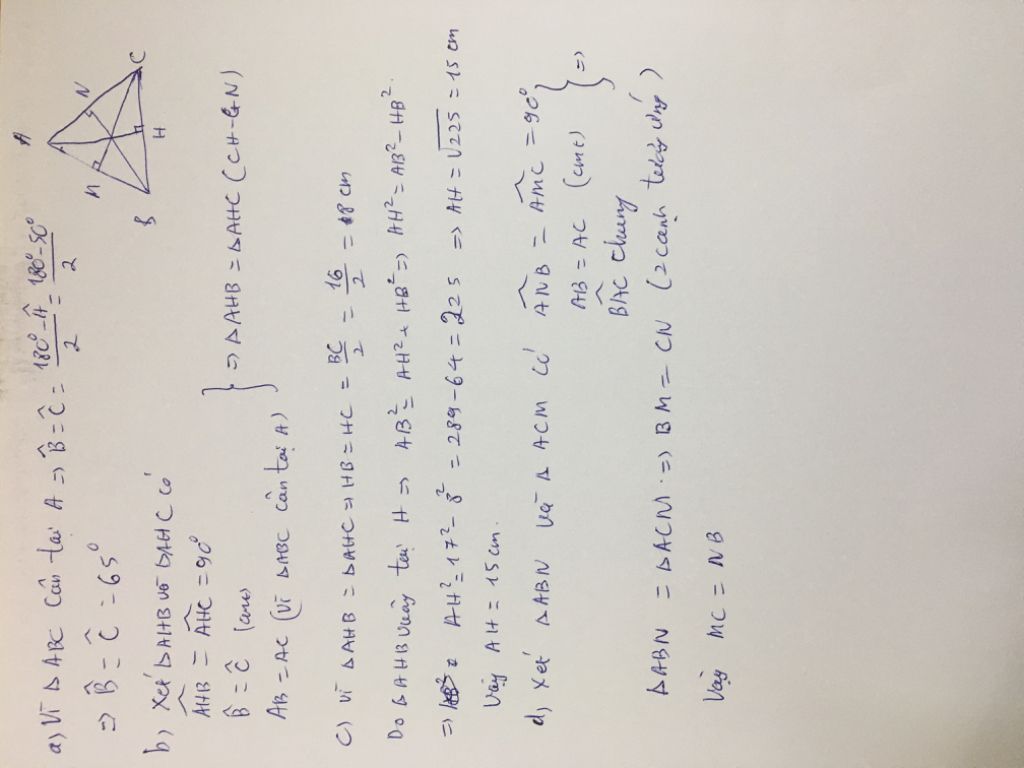 a) Vì Δ ABC cân tại A => B̂ = Ĉ = (180° - Â)/2 = (180° - 50°)/2
=> B̂ = Ĉ = 65°
A
M
N
B
H
C
b) Xét ΔAHB và ΔAHC có
AHB = AHC = 90°
B̂ = Ĉ (cmt)
AB = AC (Vì ΔABC cân tại A)
} => ΔAHB = ΔAHC (CH-GN)
c) Vì ΔAHB = ΔAHC => HB = HC = BC/2 = 16/2 = 8 cm
Do ΔAHB vuông tại H => AB² = AH² + HB² => AH² = AB² - HB².
=> AH² = 17² - 8² = 289 - 64 = 225 => AH = √225 = 15 cm
Vậy AH = 15 cm.
d) Xét ΔABN và Δ ACM có ANB = AMC = 90°
AB = AC (cmt)
BAC chung
} =>
ΔABN = ΔACM => BM = CN (2 cạnh tương ứng)
Vậy MC = NB